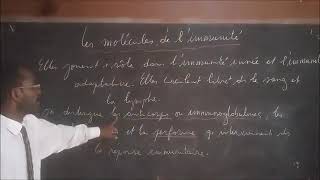 Les molécules de l'immunité
Elles jouent 1 rôle dans l'immunité innée et l'immunité
adaptative. Elles circulent librᵗ ds le sang et
la lymphe.
on distingue les anticorps ou immunoglobulines, les
et la perforine qi interviennent ds
la réponse immunitaire.